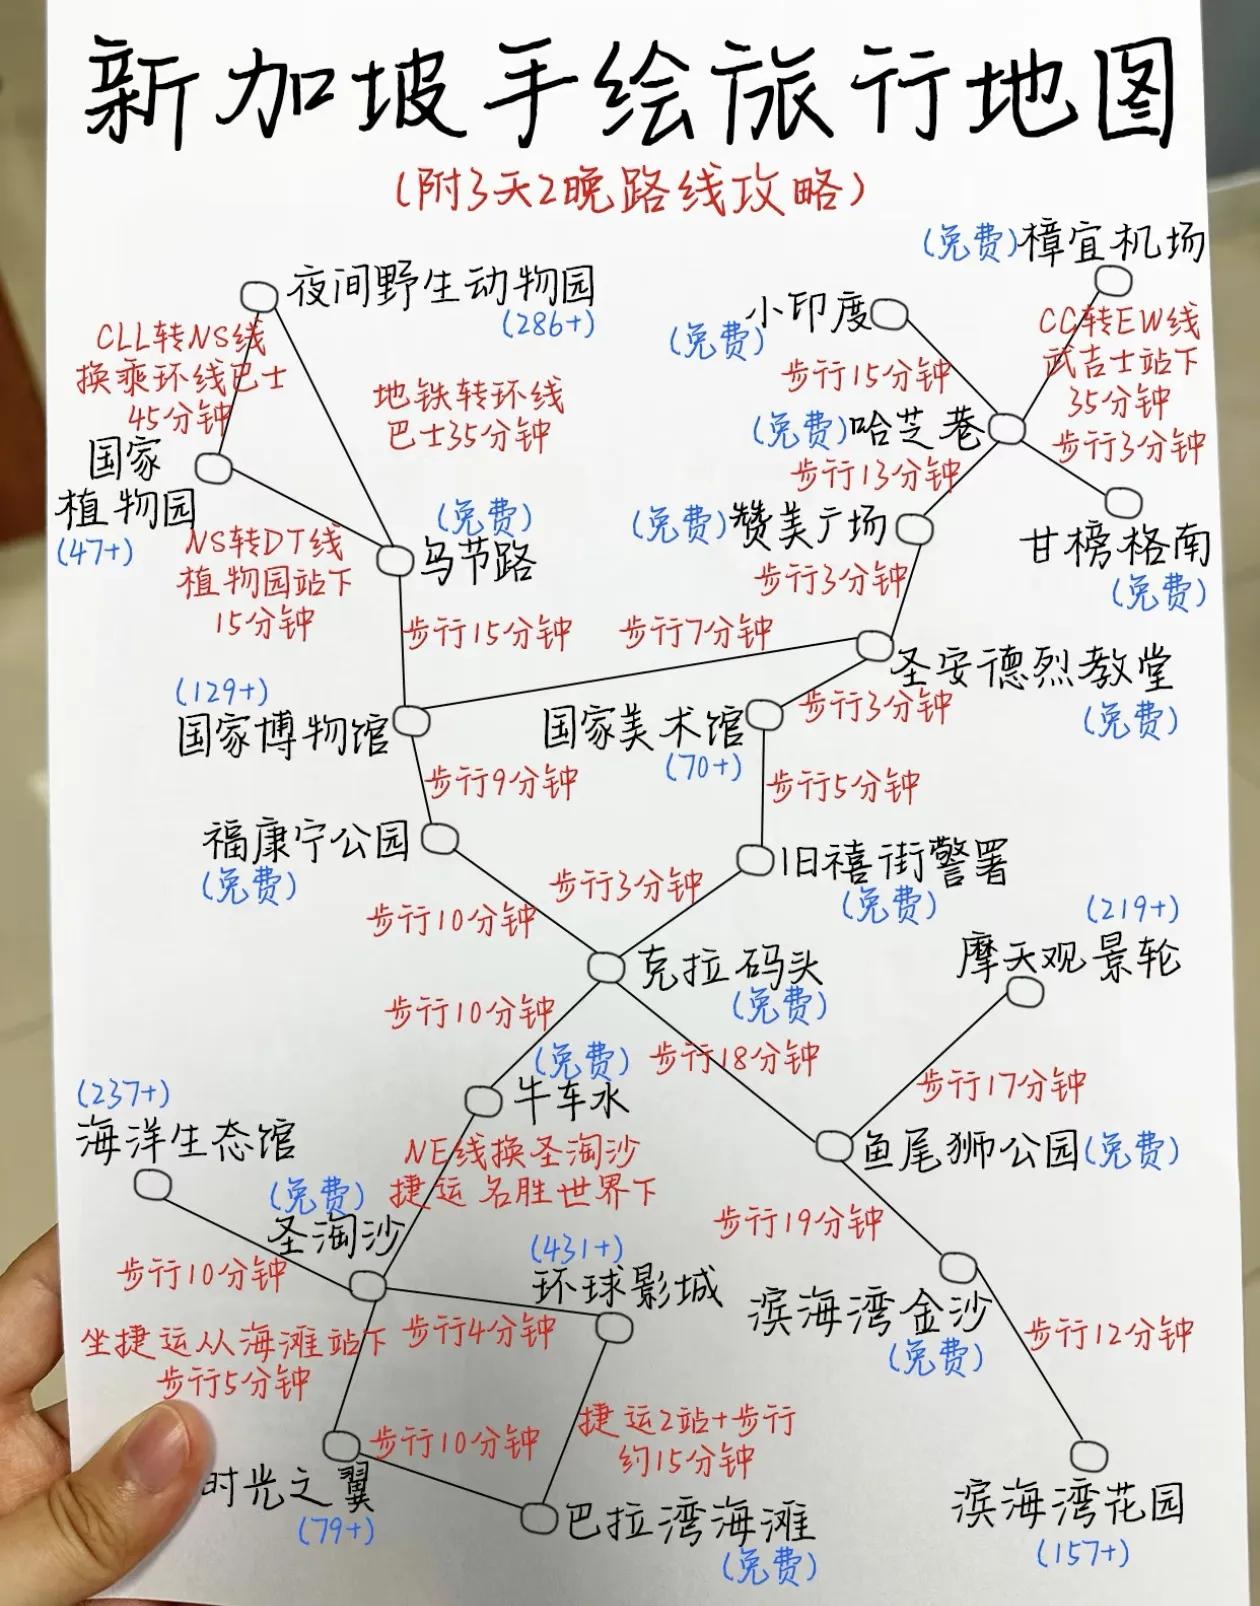 新加坡手绘旅行地图
(附3天2晚路线攻略)
(免费)樟宜机场
夜间野生动物园
(286+)
小印度
(免费)
CLL转NS线
换乘环线巴士
45分钟
CC转EW线
武吉士站下
35分钟
地铁转环线
巴士35分钟
步行15分钟
(免费)哈芝巷
步行3分钟
国家
植物园
(47+)
步行13分钟
(免费)
乌节路
(免费)赞美广场
甘榜格南
(免费)
NS转DT线
植物园站下
15分钟
步行3分钟
步行15分钟
步行7分钟
圣安德烈教堂
(免费)
(129+)
国家博物馆
国家美术馆
(70+)
步行3分钟
步行9分钟
步行5分钟
福康宁公园
(免费)
旧禧街警署
(免费)
步行3分钟
步行10分钟
(219+)
摩天观景轮
克拉码头
(免费)
步行10分钟
(免费)
牛车水
步行18分钟
步行17分钟
(237+)
海洋生态馆
NE线换圣淘沙
捷运 名胜世界下
鱼尾狮公园(免费)
(免费)
圣淘沙
步行10分钟
步行19分钟
(431+)
环球影城
滨海湾金沙
(免费)
坐捷运从海滩站下
步行5分钟
步行4分钟
步行12分钟
步行10分钟
捷运2站+步行
约15分钟
时光之翼
(79+)
巴拉湾海滩
(免费)
滨海湾花园
(157+)